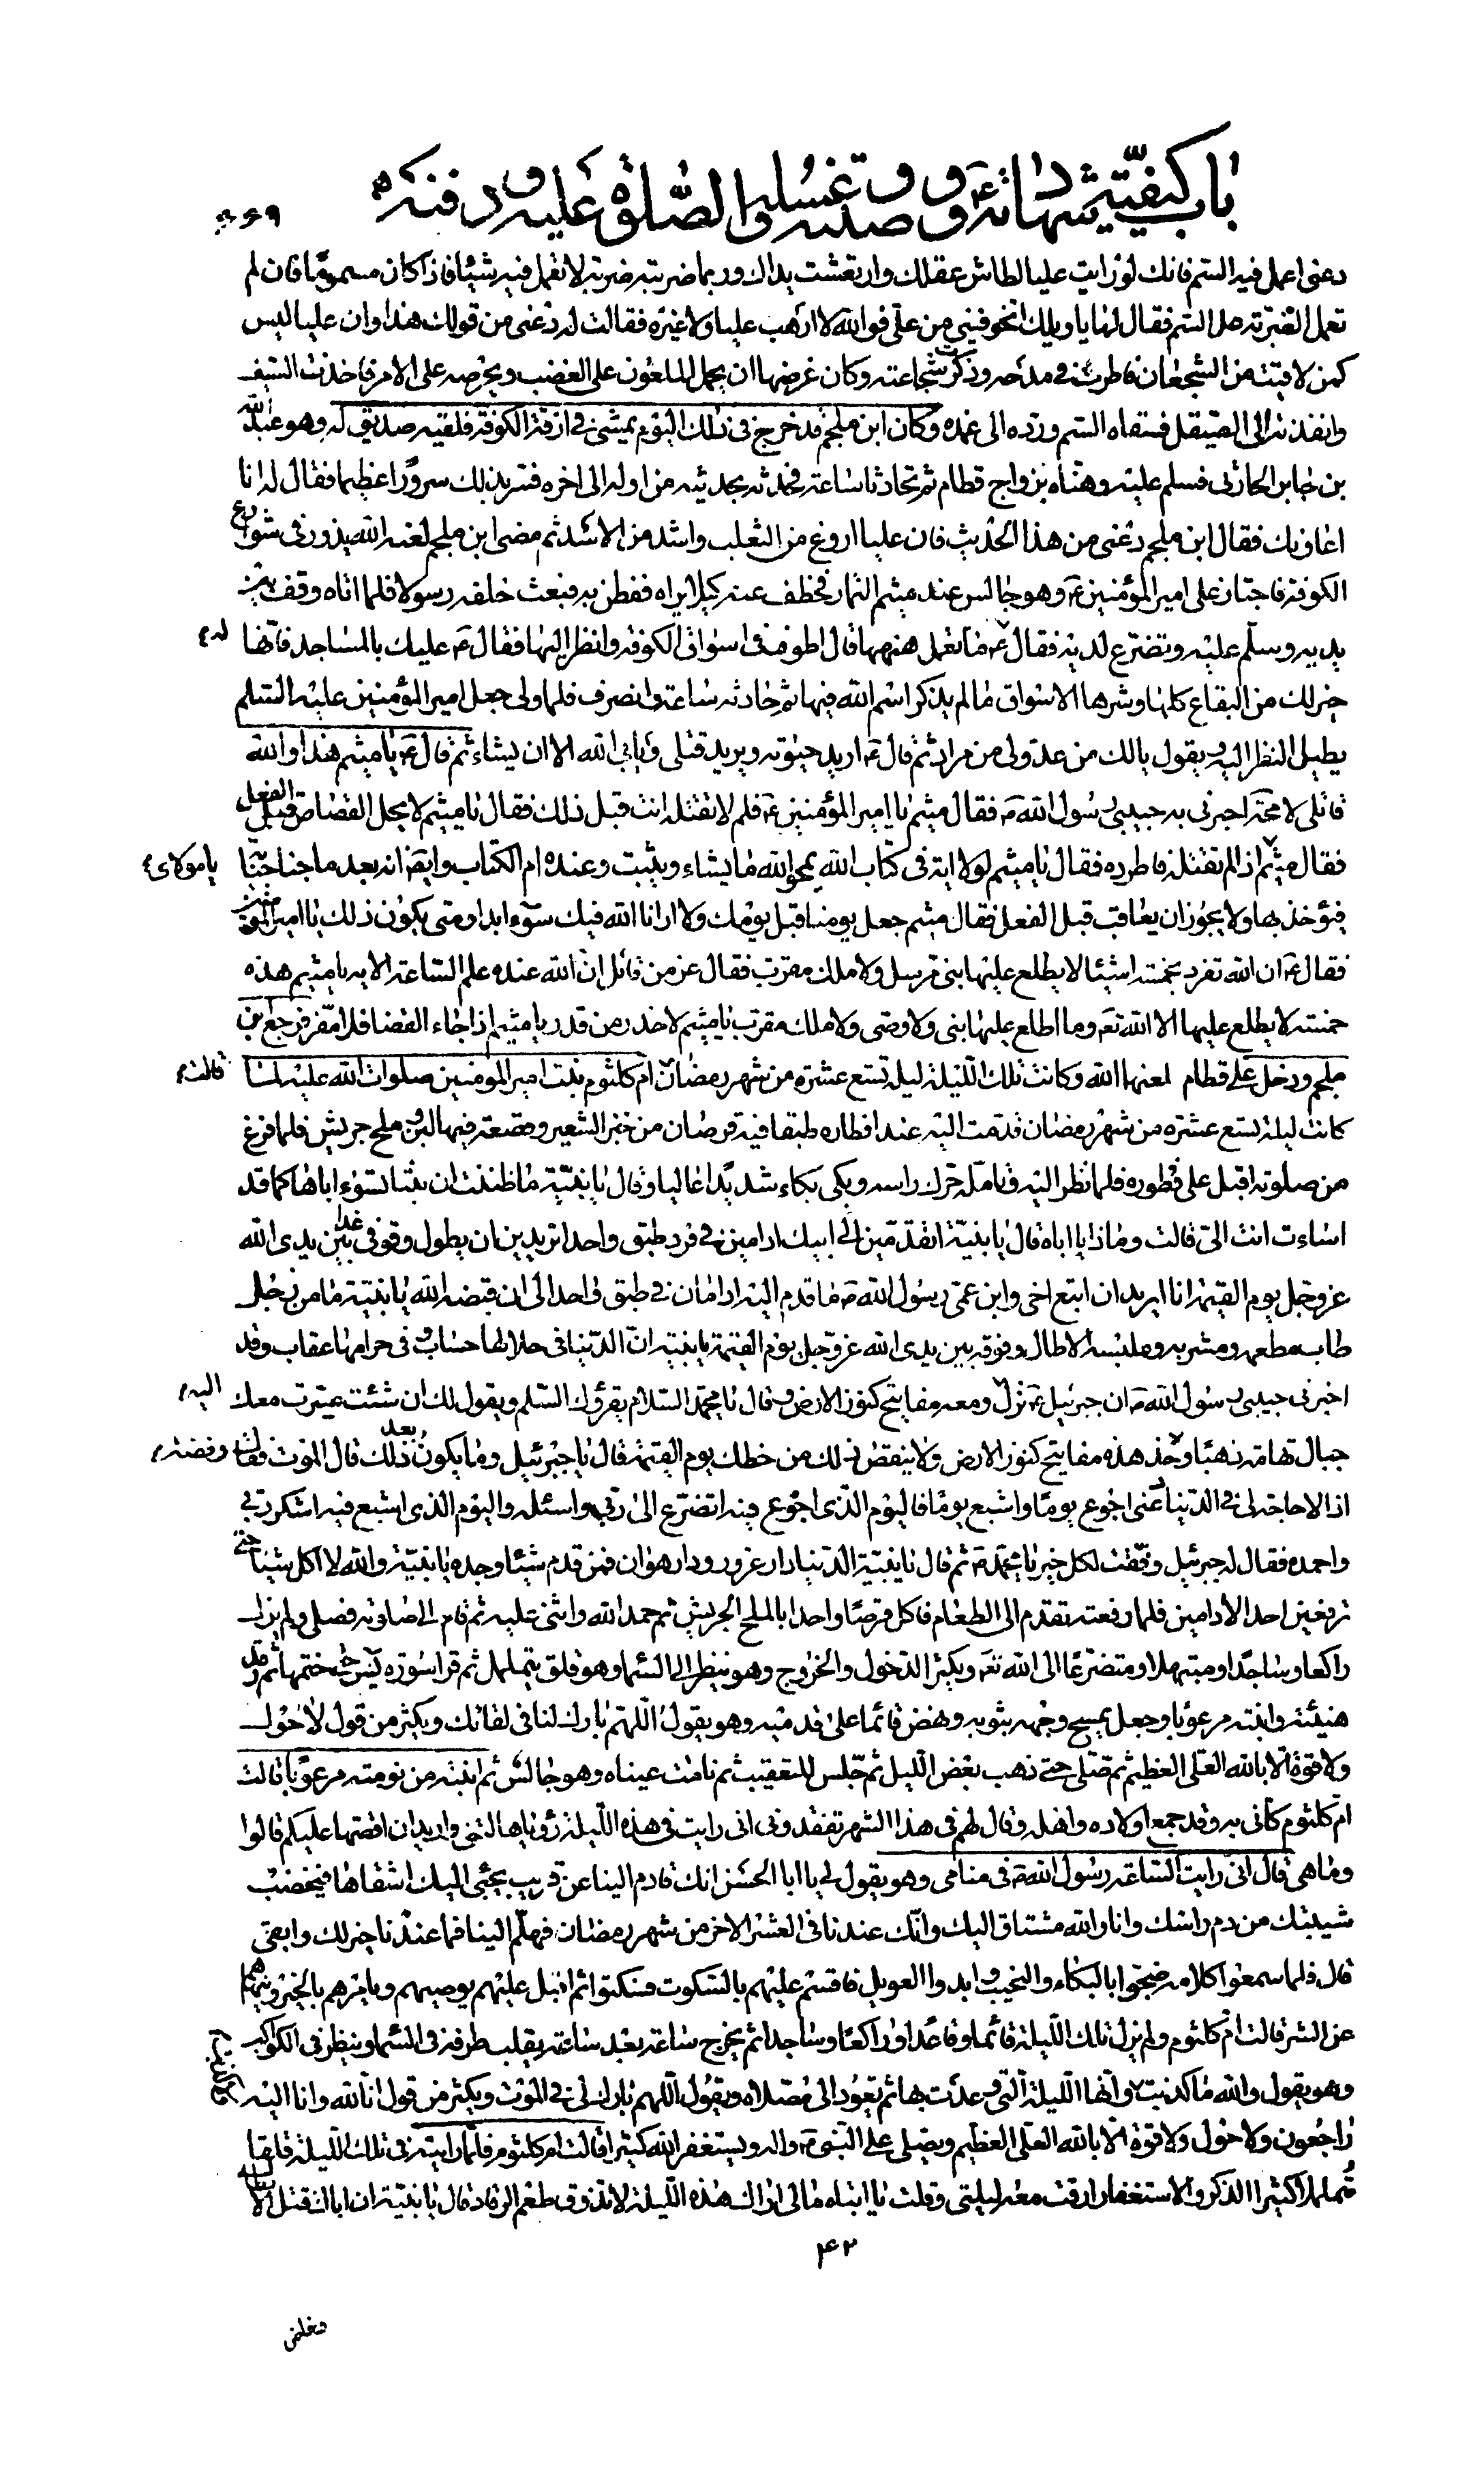 باب كيفيّة شهادته ع و وصيّته وغسله والصّلوة عليه و دفنه
٣٦٩
دعنى اعمل فيه السّم فانك لو رايت عليا لطاش عقلك وارتعشت يداك وربما ضربته ضربة لا تعمل فيه شيئا فاذا كان مسموما فان لم
تعمل الضّربة عمل السّم فقال لها يا ويلك اتخوفينى من على فوالله لا ارهب عليا ولا غيره فقالت له دعنى من قولك هذا وان عليا ليس
كمن لاقيت من الشجعان فاطرت فى مدحه وذكرت شجاعته وكان غرضها ان يحمل الملعون على الغضب ويحرصه على الامر فاخذت السّيف
وانفذته الى الصّيقل فسقاه السّم وردّه الى غمده وكان ابن ملجم قد خرج فى ذلك اليوم يمشى فى ازقّة الكوفة فلقيه صديق له وهو عبد الله
بن جابر الحارثى فسلم عليه وهنّاه بزواج قطام ثم تحادثا ساعة فحدثه بحديثه من اوله الى اخره فسر بذلك سرورا عظيما فقال له انا
اعاونك فقال ابن ملجم دعنى من هذا الحديث فان عليا اروغ من الثعلب واشد من الاسد ثم مضى ابن ملجم لعنه الله يدور فى شوارع
الكوفة فاجتاز على امير المؤمنين ع وهو جالس عند ميثم التمار فخطف عنه كيلا يراه ففطن به فبعث خلفه رسولا فلما اتاه وقف بين
يديه وسلّم عليه وتضرّع لديه فقال ع له ما تعمل هنا قال اطوف فى اسواق الكوفة وانظر اليها فقال ع عليك بالمساجد فانّها
خير لك من البقاع كلها وشرها الاسواق ما لم يذكر اسم الله فيها ثم حادثه ساعة وانصرف فلما ولى جعل امير المؤمنين عليه السّلم
يطيل النظر اليه ويقول يا لك من عدو لى من مراد ثم قال ع اريد حيوته ويريد قتلى ويابى الله الا ان يشاء ثم قال ع يا ميثم هذا والله
قاتلى لا محة اخبرنى به حبيبى رسول الله ص فقال ميثم يا امير المؤمنين ع فلم لا تقتله انت قبل ذلك فقال يا ميثم لا يحل القصاص قبل الفعل
فقال ميثم يا مولاى اذا لم تقتله فاطرده فقال يا ميثم لولا اية فى كتاب الله يمحو الله ما يشاء ويثبت وعنده ام الكتاب وايضا انه بعد ما جنا جناية
فيؤخذ بها ولا يجوز ان يعاقب قبل الفعل فقال ميثم جعل يومنا قبل يومك ولا ارانا الله فيك سوء ابدا ومتى يكون ذلك يا امير المؤمنين
فقال ع ان الله تفرد بخمسة اشيئا لا يطلع عليها نبى مرسل ولا ملك مقرب فقال عز من قائل ان الله عنده علم السّاعة الاية يا ميثم هذه
خمسة لا يطلع عليها الا الله تع وما اطلع عليها نبى ولا وصى ولا ملك مقرب يا ميثم لا حذر من قدر يا ميثم اذا جاء القضا فلا مفر فرجع ابن
ملجم ودخل على قطام لعنها الله وكانت تلك اللّيلة ليلة تسع عشرة من شهر رمضان قالت ام كلثوم بنت امير المؤمنين صلوات الله عليه لما
كانت ليلة تسع عشرة من شهر رمضان قدمت اليه عند افطاره طبقا فيه قرصان من خبز الشعير وقصعة فيها لبن وملح جريش فلما فرغ
من صلوته اقبل على فطوره فلما نظر اليه وتامله حرك راسه وبكى بكاء شديدا عاليا وقال يا بنيّة ما ظننت ان بنتا تسوء اباها كما قد
اساءت انت الىّ قالت وماذا يا اباه قال يا بنيّة اتقدّمين الى ابيك ادامين فى فرد طبق واحد اتريدين ان يطول وقوفى غدا بين يدى الله
عز وجل يوم القيمة انا اريد ان اتبع اخى وابن عمى رسول الله ص ما قدم اليه ادامان فى طبق واحد الى ان قبضه الله يا بنيّة ما من رجل
طاب مطعمه ومشربه وملبسه الا طال وقوفه بين يدى الله عز وجل يوم القيمة يا بنيّة انّ الدّنيا فى حلالها حساب وفى حرامها عقاب وقد
اخبرنى حبيبى رسول الله ص ان جبرئيل ع نزل اليه ومعه مفاتيح كنوز الارض وقال يا محمّد السّلام يقرؤك السّلم ويقول لك ان شئت صيّرت معك
جبال تهامة ذهبا وفضة وخذ هذه مفاتيح كنوز الارض ولا ينقص ذلك من حظك يوم القيمة قال يا جبرئيل وما يكون بعد ذلك قال الموت فقال
اذا لا حاجة لى فى الدّنيا دعنى اجوع يوما واشبع يوما فاليوم الّذى اجوع فيه اتضرّع الى ربّى واسئله واليوم الذى اشبع فيه اشكر ربى
واحمده فقال له جبرئيل وفّقت لكل خير يا محمّد ص ثم قال يا بنيّة الدّنيا دار غرور ودار هوان فمن قدم شيئا وجده يا بنيّة والله لا اكل شيئا حتى
ترفعين احد الادامين فلما رفعته تقدم الى الطعام فاكل قرصا واحدا بالملح الجريش ثم حمد الله واثنى عليه ثم قام الى صلوته فصلى ولم يزل
راكعا وساجدا ومبتهلا ومتضرّعا الى الله تع ويكثر الدّخول والخروج وهو ينظر الى السّماء وهو قلق يتململ ثم قرا سورة يس حتى ختمها ثم رقد
هنيئة وانتبه مرعوبا وجعل يمسح وجهه بثوبه ونهض قائما على قدميه وهو يقول اللّهمّ بارك لنا فى لقائك ويكثر من قول لا حول
ولا قوة الا بالله العلى العظيم ثم صلى حتى ذهب بعض اللّيل ثم جلس للتعقيب ثم نامت عيناه وهو جالس ثم انتبه من نومته مرعوبا قالت
ام كلثوم كانى به وقد جمع اولاده واهله وقال لهم فى هذا الشهر تفقدونى انى رايت فى هذه اللّيلة رؤيا هالتنى واريد ان اقصّها عليكم قالوا
وما هى قال انى رايت السّاعة رسول الله ص فى منامى وهو يقول لى يا ابا الحسن انك قادم الينا عن قريب يجىء اليك اشقاها فيخضب
شيبتك من دم راسك وانا والله مشتاق اليك وانّك عندنا فى العشر الاخر من شهر رمضان فهلمّ الينا فما عندنا خير لك وابقى
قال فلما سمعوا كلامه ضجّوا بالبكاء والنحيب وابدوا العويل فاقسم عليهم بالسّكوت فسكتوا ثم اقبل عليهم يوصيهم ويامرهم بالخير وينهيهم
عن الشر قالت ام كلثوم ولم يزل تلك اللّيلة قائما وقاعدا وراكعا وساجدا ثم يخرج ساعة بعد ساعة يقلب طرفه فى السّماء وينظر فى الكواكب
وهو يقول والله ما كذبت ولا كذبت وانّها اللّيلة الّتى وعدت بها ثم يعود الى مصلاه ويقول اللّهم بارك لى فى الموت ويكثر من قول انّا لله وانا اليه
راجعون ولا حول ولا قوة الا بالله العلى العظيم ويصلى على النّبى ص واله ويستغفر الله كثيرا قالت ام كلثوم فلمّا رايته فى تلك اللّيلة قلقا
متململا كثير الذكر والاستغفار ارقت معه ليلتى وقلت يا ابتاه ما لى اراك هذه اللّيلة لا تذوق طعم الرقاد قال يا بنيّة ان اباك قتل الابطال
٤٢